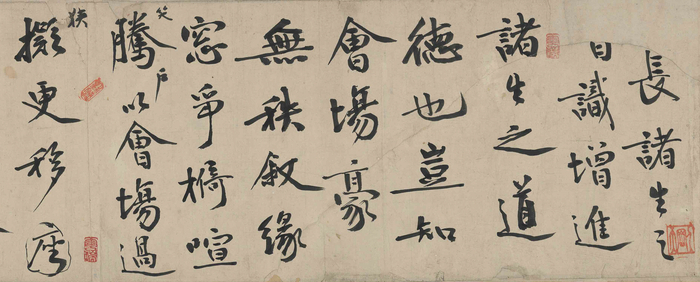 長諸生之
日識增進
諸生之道
德也豈知
會場稾
無秩敘緣
窓爭椅喧
騰户以會場過
笑狹
擬更移席